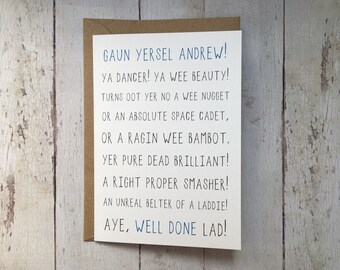 GAUN YERSEL ANDREW!
YA DANCER! YA WEE BEAUTY!
TURNS OOT YER NO A WEE NUGGET
OR AN ABSOLUTE SPACE CADET,
OR A RAGIN WEE BAMBOT.
YER PURE DEAD BRILLIANT!
A RIGHT PROPER SMASHER!
AN UNREAL BELTER OF A LADDIE!
AYE, WELL DONE LAD!